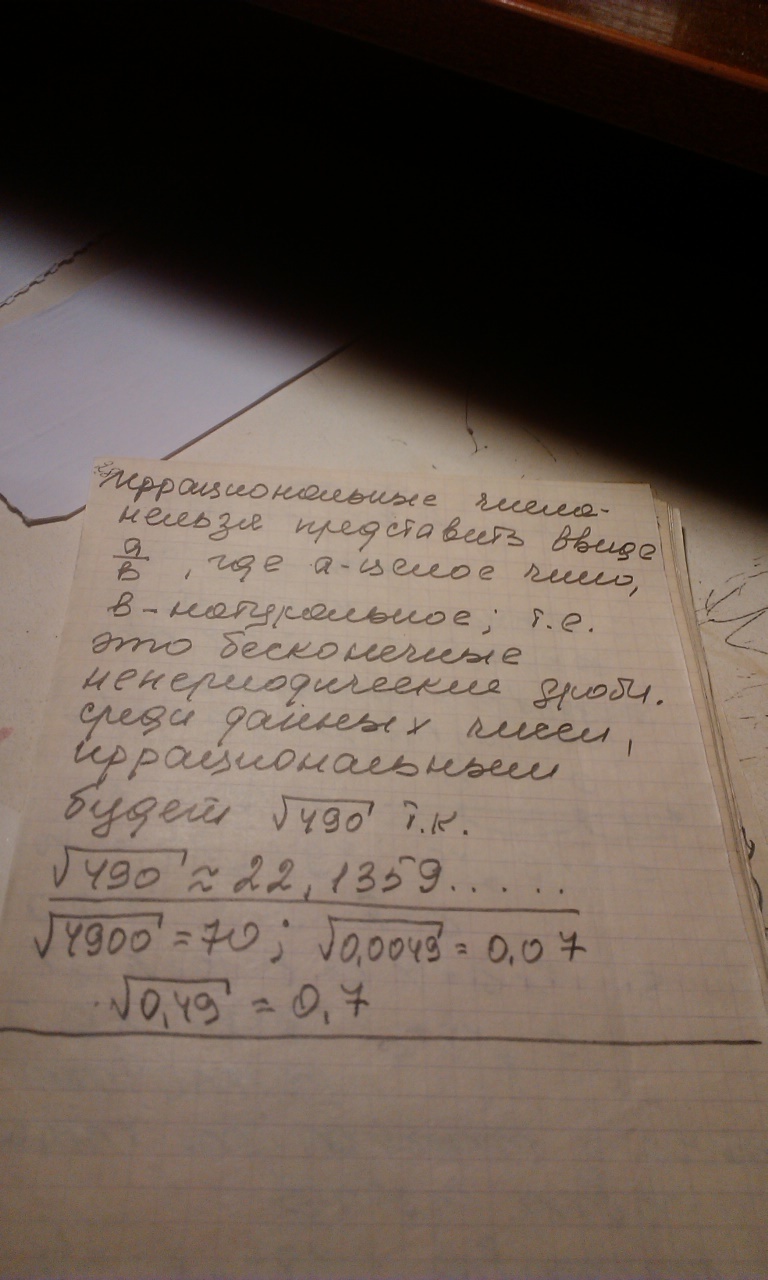 Иррациональные числа-
нельзя представить ввиде
a/в, где а-целое число,
в-натуральное; т.е.
это бесконечные
непериодические дроби.
среди данных чисел,
иррациональным
будет √490 т.к.
√490 ≈ 22,1359.....
√4900 = 70; √0,0049 = 0,07
√0,49 = 0,7